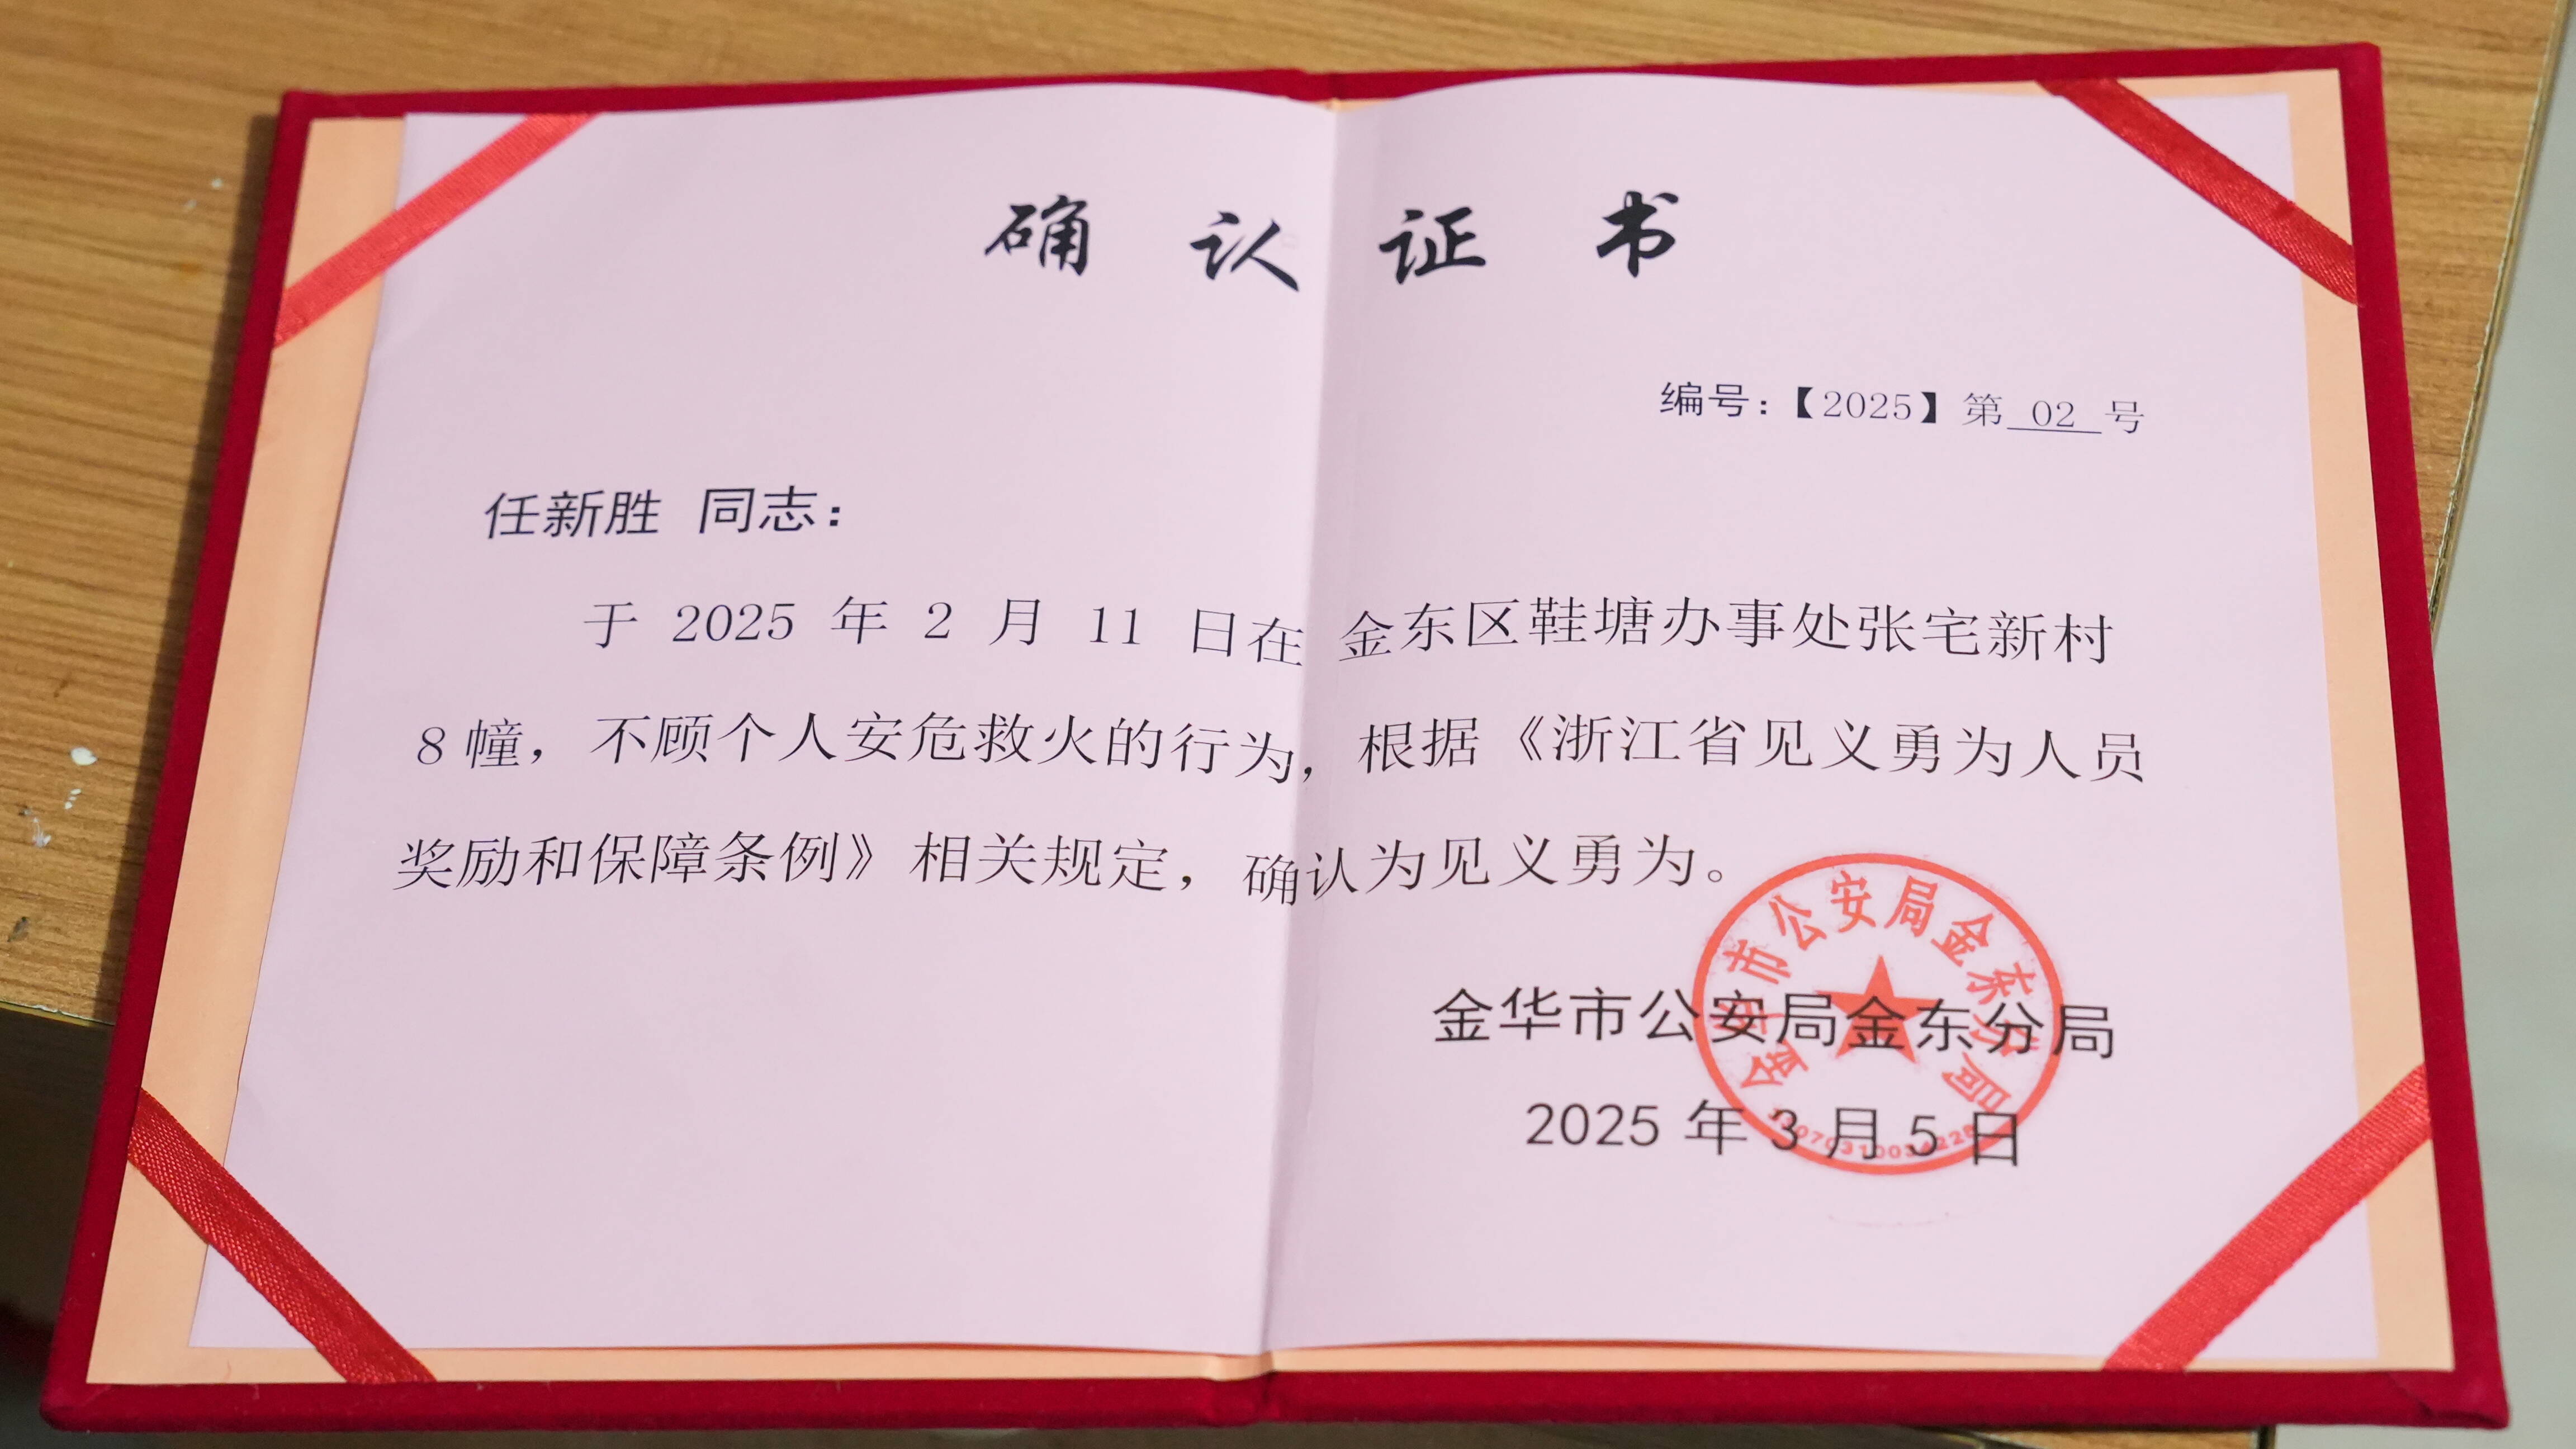 确认证书
编号：【2025】第 02 号
任新胜 同志：
于 2025 年 2 月 11 日在金东区鞋塘办事处张宅新村
8 幢，不顾个人安危救火的行为，根据《浙江省见义勇为人员
奖励和保障条例》相关规定，确认为见义勇为。
金华市公安局金东分局
2025 年 3 月 5 日
金华市公安局金东分局